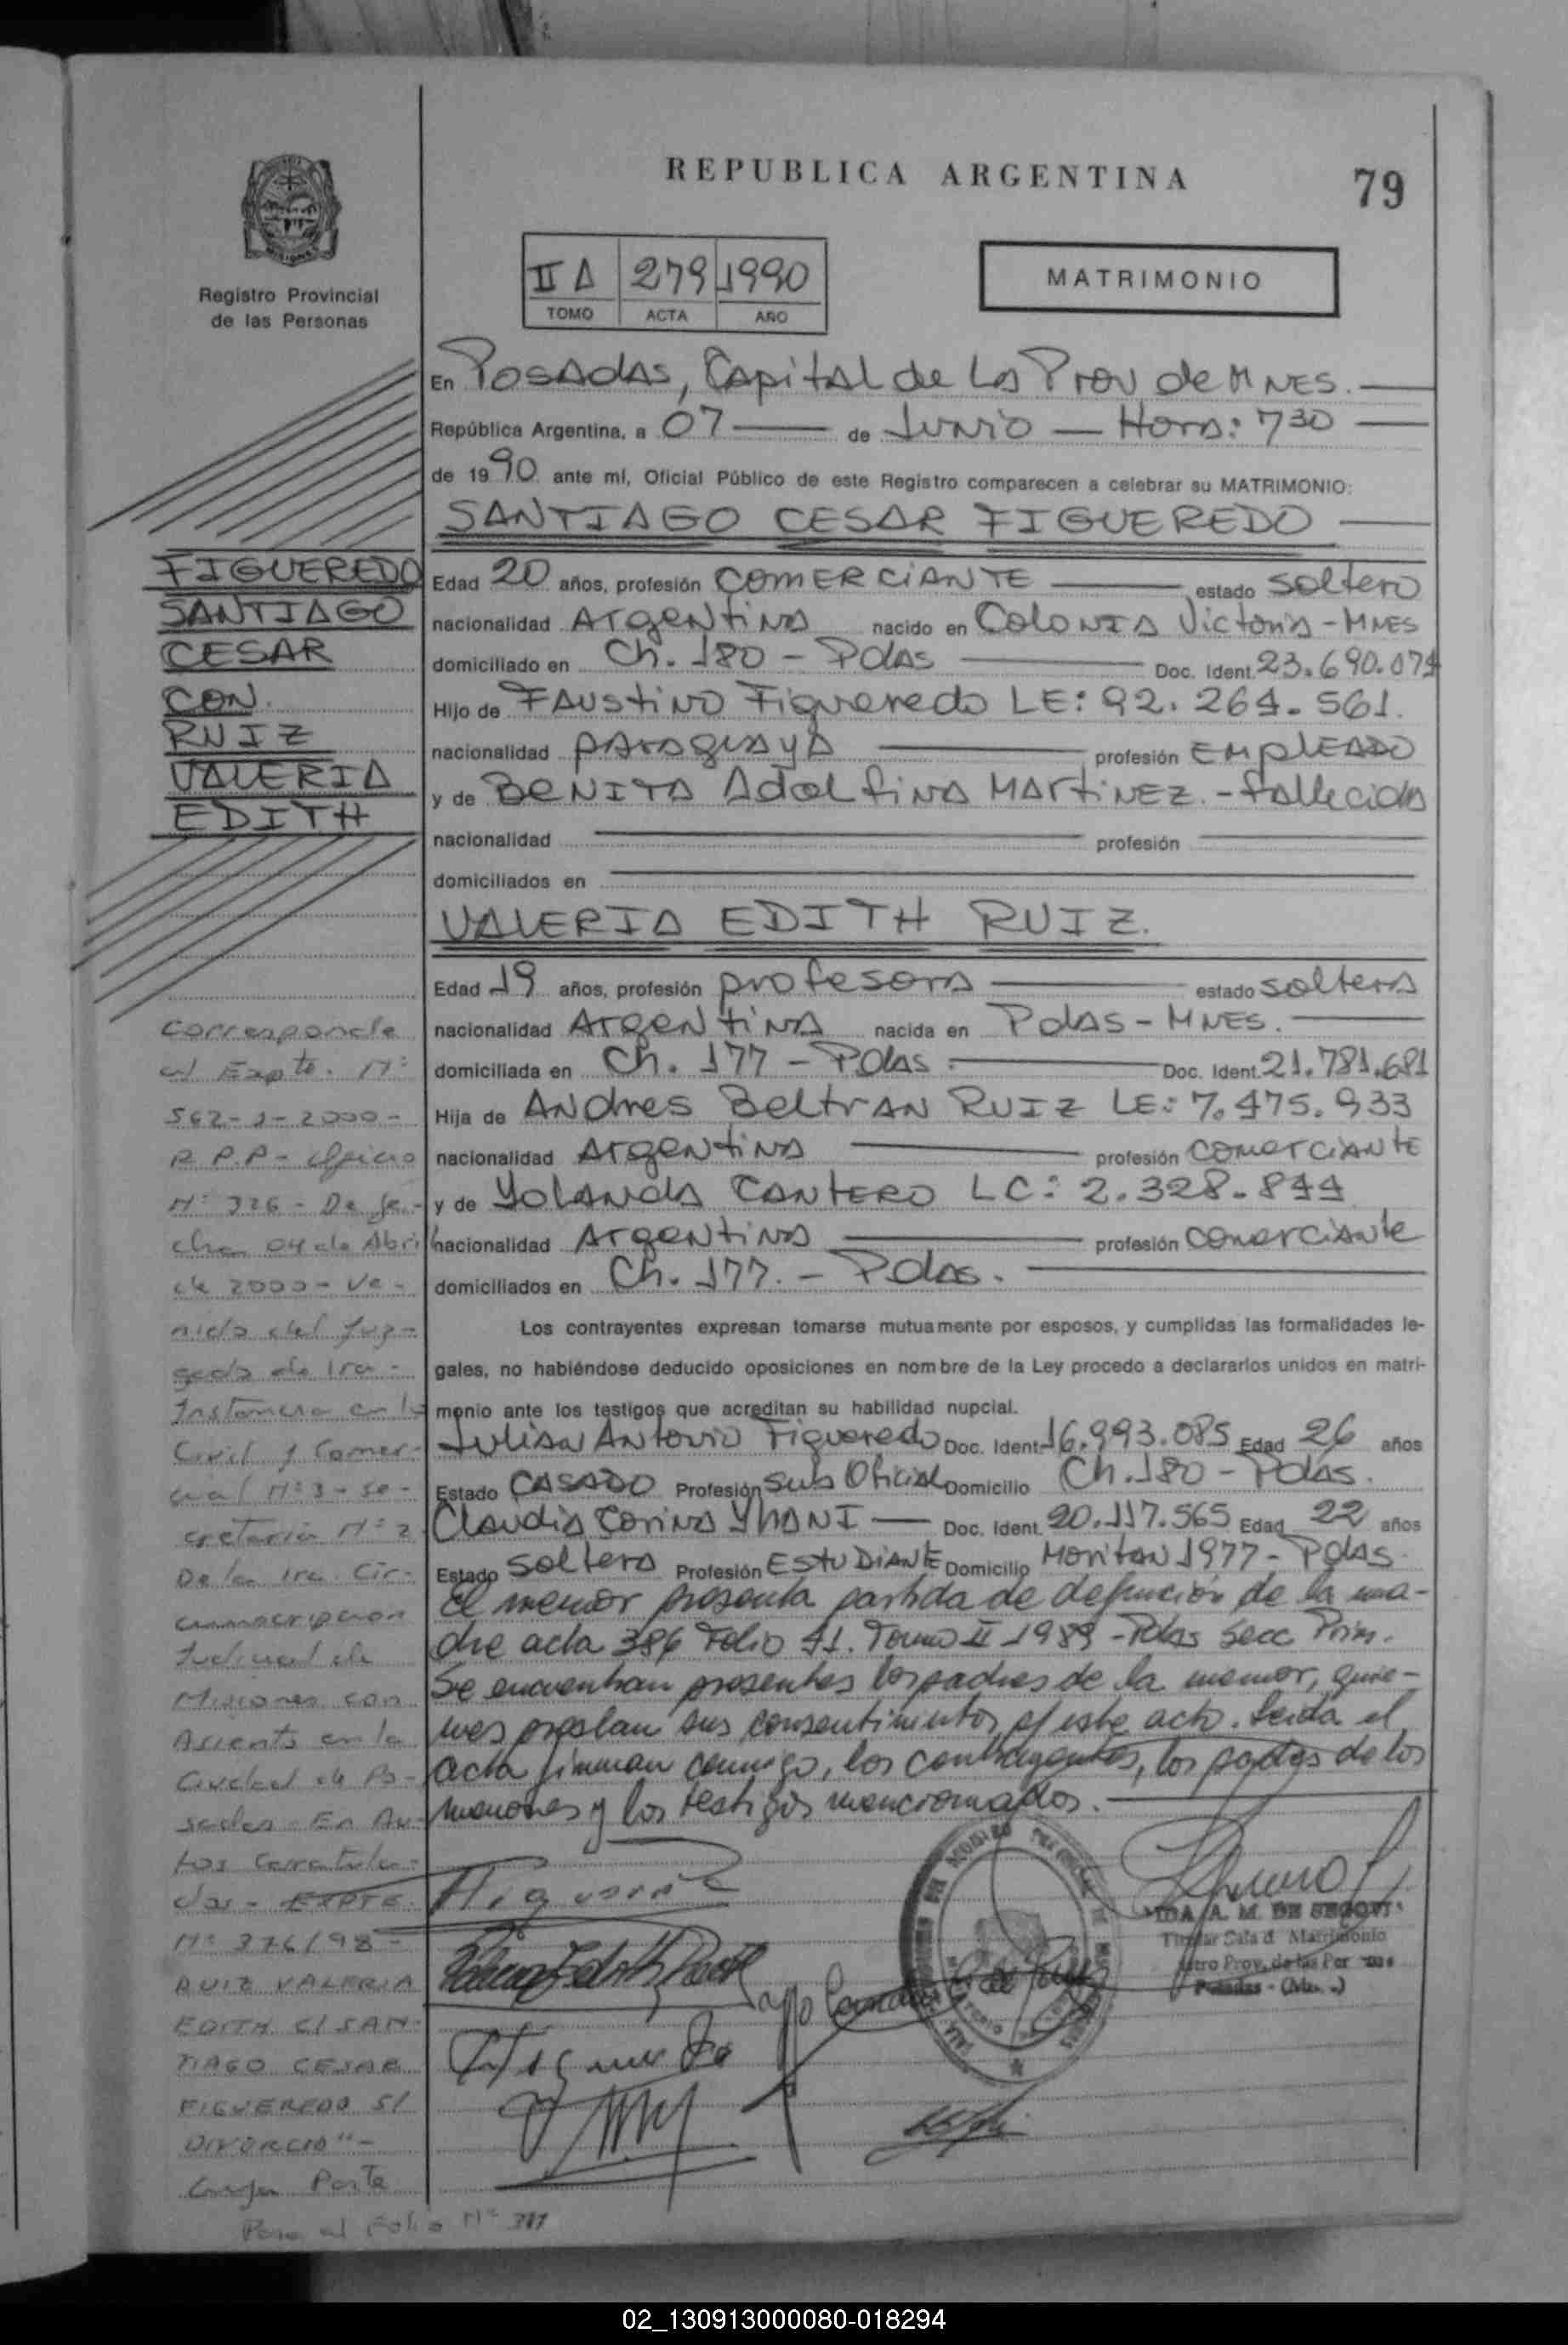 REPUBLICA ARGENTINA
79
Registro Provincial
de las Personas
II A 279 1990
TOMO ACTA AÑO
MATRIMONIO
En Posadas, Capital de La Prov de Mnes.
República Argentina, a 07 de Junio — Hora: 7 30
de 1990 ante mí, Oficial Público de este Registro comparecen a celebrar su MATRIMONIO:
SANTIAGO CESAR FIGUEREDO
Edad 20 años, profesión COMERCIANTE estado soltero
nacionalidad Argentina nacido en Colonia Victoria - Mnes
domiciliado en Ch. 180 - Pdas Doc. Ident. 23.690.074
Hijo de Faustino Figueredo LE: 92.264.561.
nacionalidad paraguaya profesión EMPLEADO
y de BENITA Adolfina MARTINEZ. - fallecida
nacionalidad profesión
domiciliados en
VALERIA EDITH RUIZ.
Edad 19 años, profesión profesora estado soltera
nacionalidad Argentina nacida en Pdas - Mnes.
domiciliada en Ch. 177 - Pdas. Doc. Ident. 21.781.681
Hija de Andres Beltran Ruiz LE: 7.475.933
nacionalidad Argentina profesión comerciante
y de Yolanda CANTERO LC: 2.328.844
nacionalidad Argentina profesión comerciante
domiciliados en Ch. 177. - Pdas.
Los contrayentes expresan tomarse mutuamente por esposos, y cumplidas las formalidades le-
gales, no habiéndose deducido oposiciones en nombre de la Ley procedo a declararlos unidos en matri-
monio ante los testigos que acreditan su habilidad nupcial.
Julian Antonio Figueredo Doc. Ident. 16.993.085 Edad 26 años
Estado CASADO Profesión Sub Oficial Domicilio Ch. 180 - Pdas.
Claudia Corina YHANI — Doc. Ident. 20.117.565 Edad 22 años
Estado soltera Profesión ESTUDIANTE Domicilio 1977 - Pdas.
El menor presenta partida de defunción de la ma-
dre acta 386 Folio 41. Tomo II 1989 - Pdas Secc Prim.
Se encuentran presentes los padres de la menor, quie-
nes prestan sus consentimientos p/ este acto. Leida el
acta firman conmigo, los contrayentes, los padres de los
menores y los testigos mencionados.
FIGUEREDO
SANTIAGO
CESAR
CON
RUIZ
VALERIA
EDITH
Corresponde
al Expte. Nº
562-J-2000-
R.P.P - Oficio
Nº 326 - De fe-
cha 04 de Abril
de 2000 - Ve-
nido del Juz-
gado de 1ra -
Instancia en lo
Civil y Comer-
cial Nº 3 - Se-
cretaria Nº 2
De la 1ra. Cir-
cunscripcion
Judicial de
Misiones con
Asiento en la
Ciudad de Po-
sadas - En Au-
tos Caratula-
dos - EXPTE.
Nº 376/98 -
RUIZ VALERIA
EDITH C/ SAN-
TIAGO CESAR
FIGUEREDO S/
DIVORCIO" -
Cuya Parte
Pasa al Folio Nº 311
IDA A. M. DE SEGOVI
Titular Sala d Matrimonio
Posadas - (Mnes.)
02_130913000080-018294